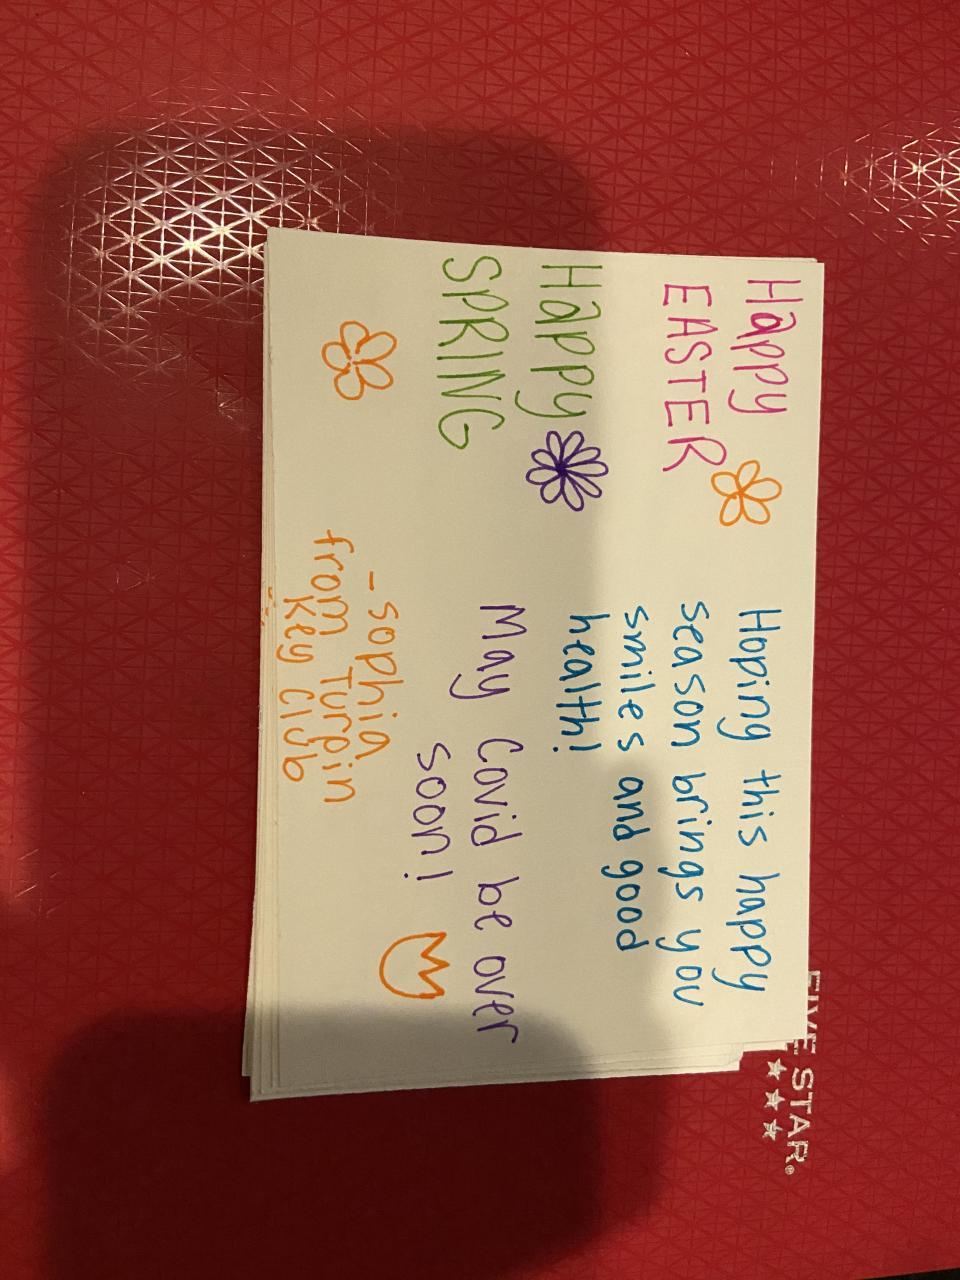 Happy
EASTER
Happy
SPRING
Hoping this happy
season brings you
smiles and good
health!
May Covid be over
soon!
-sophia
from Turpin
Key Club
FIVE STAR